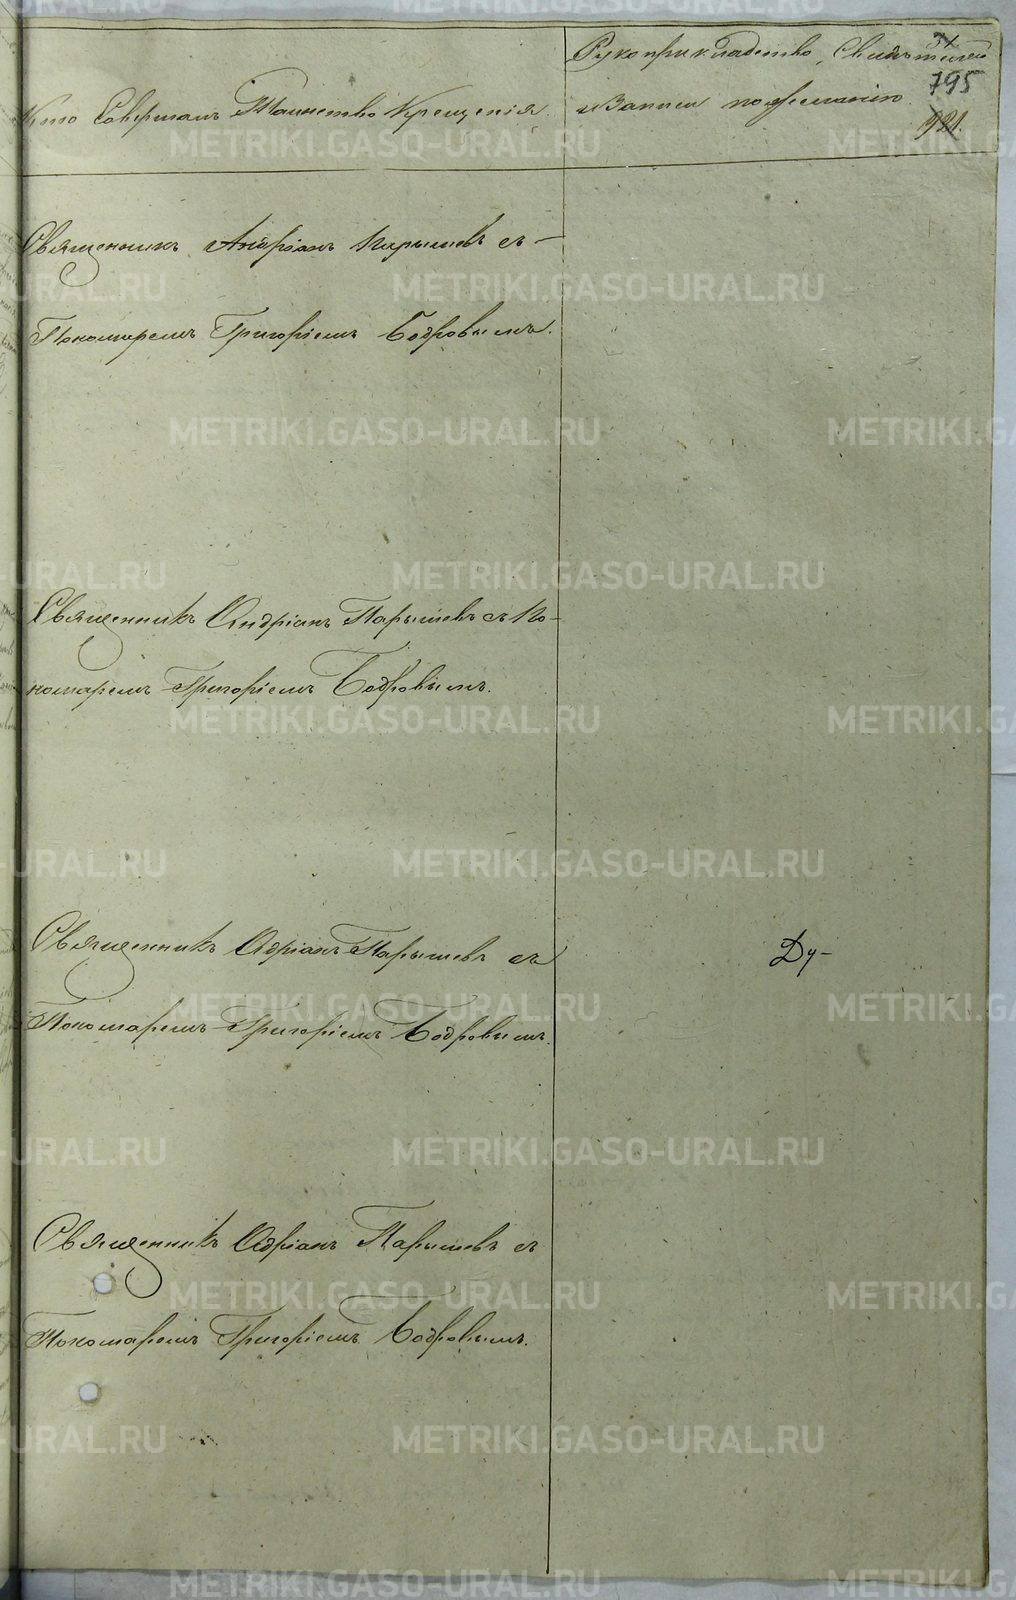 Кто Совершалъ Таинство Крещенія.
Рукоприкладство, Свидѣтелей
и Записи по желанію
795
921.
Священникъ Андріанъ Парышевъ съ
Пономаремъ Григоріемъ Бобровымъ.
Священникъ Андріанъ Парышевъ съ По-
номаремъ Григоріемъ Бобровымъ.
Священникъ Адріанъ Парышевъ съ
Пономаремъ Григоріемъ Бобровымъ.
Ду-
Священникъ Адріанъ Парышевъ съ
Пономаремъ Григоріемъ Бобровымъ.
METRIKI.GASO-URAL.RU